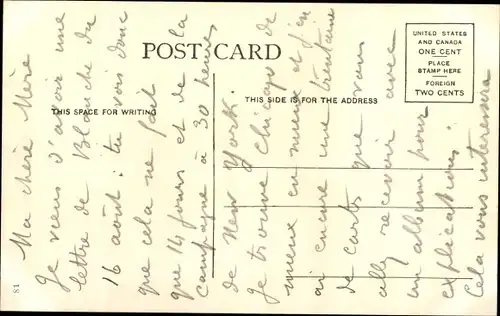 POST CARD
THIS SPACE FOR WRITING
THIS SIDE IS FOR THE ADDRESS
UNITED STATES
AND CANADA
ONE CENT
PLACE
STAMP HERE
FOREIGN
TWO CENTS
Ma chère Mère
Je viens d'avoir une
lettre de Blanche du
16 août : tu vois donc
que cela ne fait
que 14 jours et de la
campagne à 30 heures
de New York.
Je trouve Chicago de
mieux en mieux et j'en
ai encore une trentaine
de carts que vous
allez recevoir avec
un album pour
explications.
Cela vous interessera
81